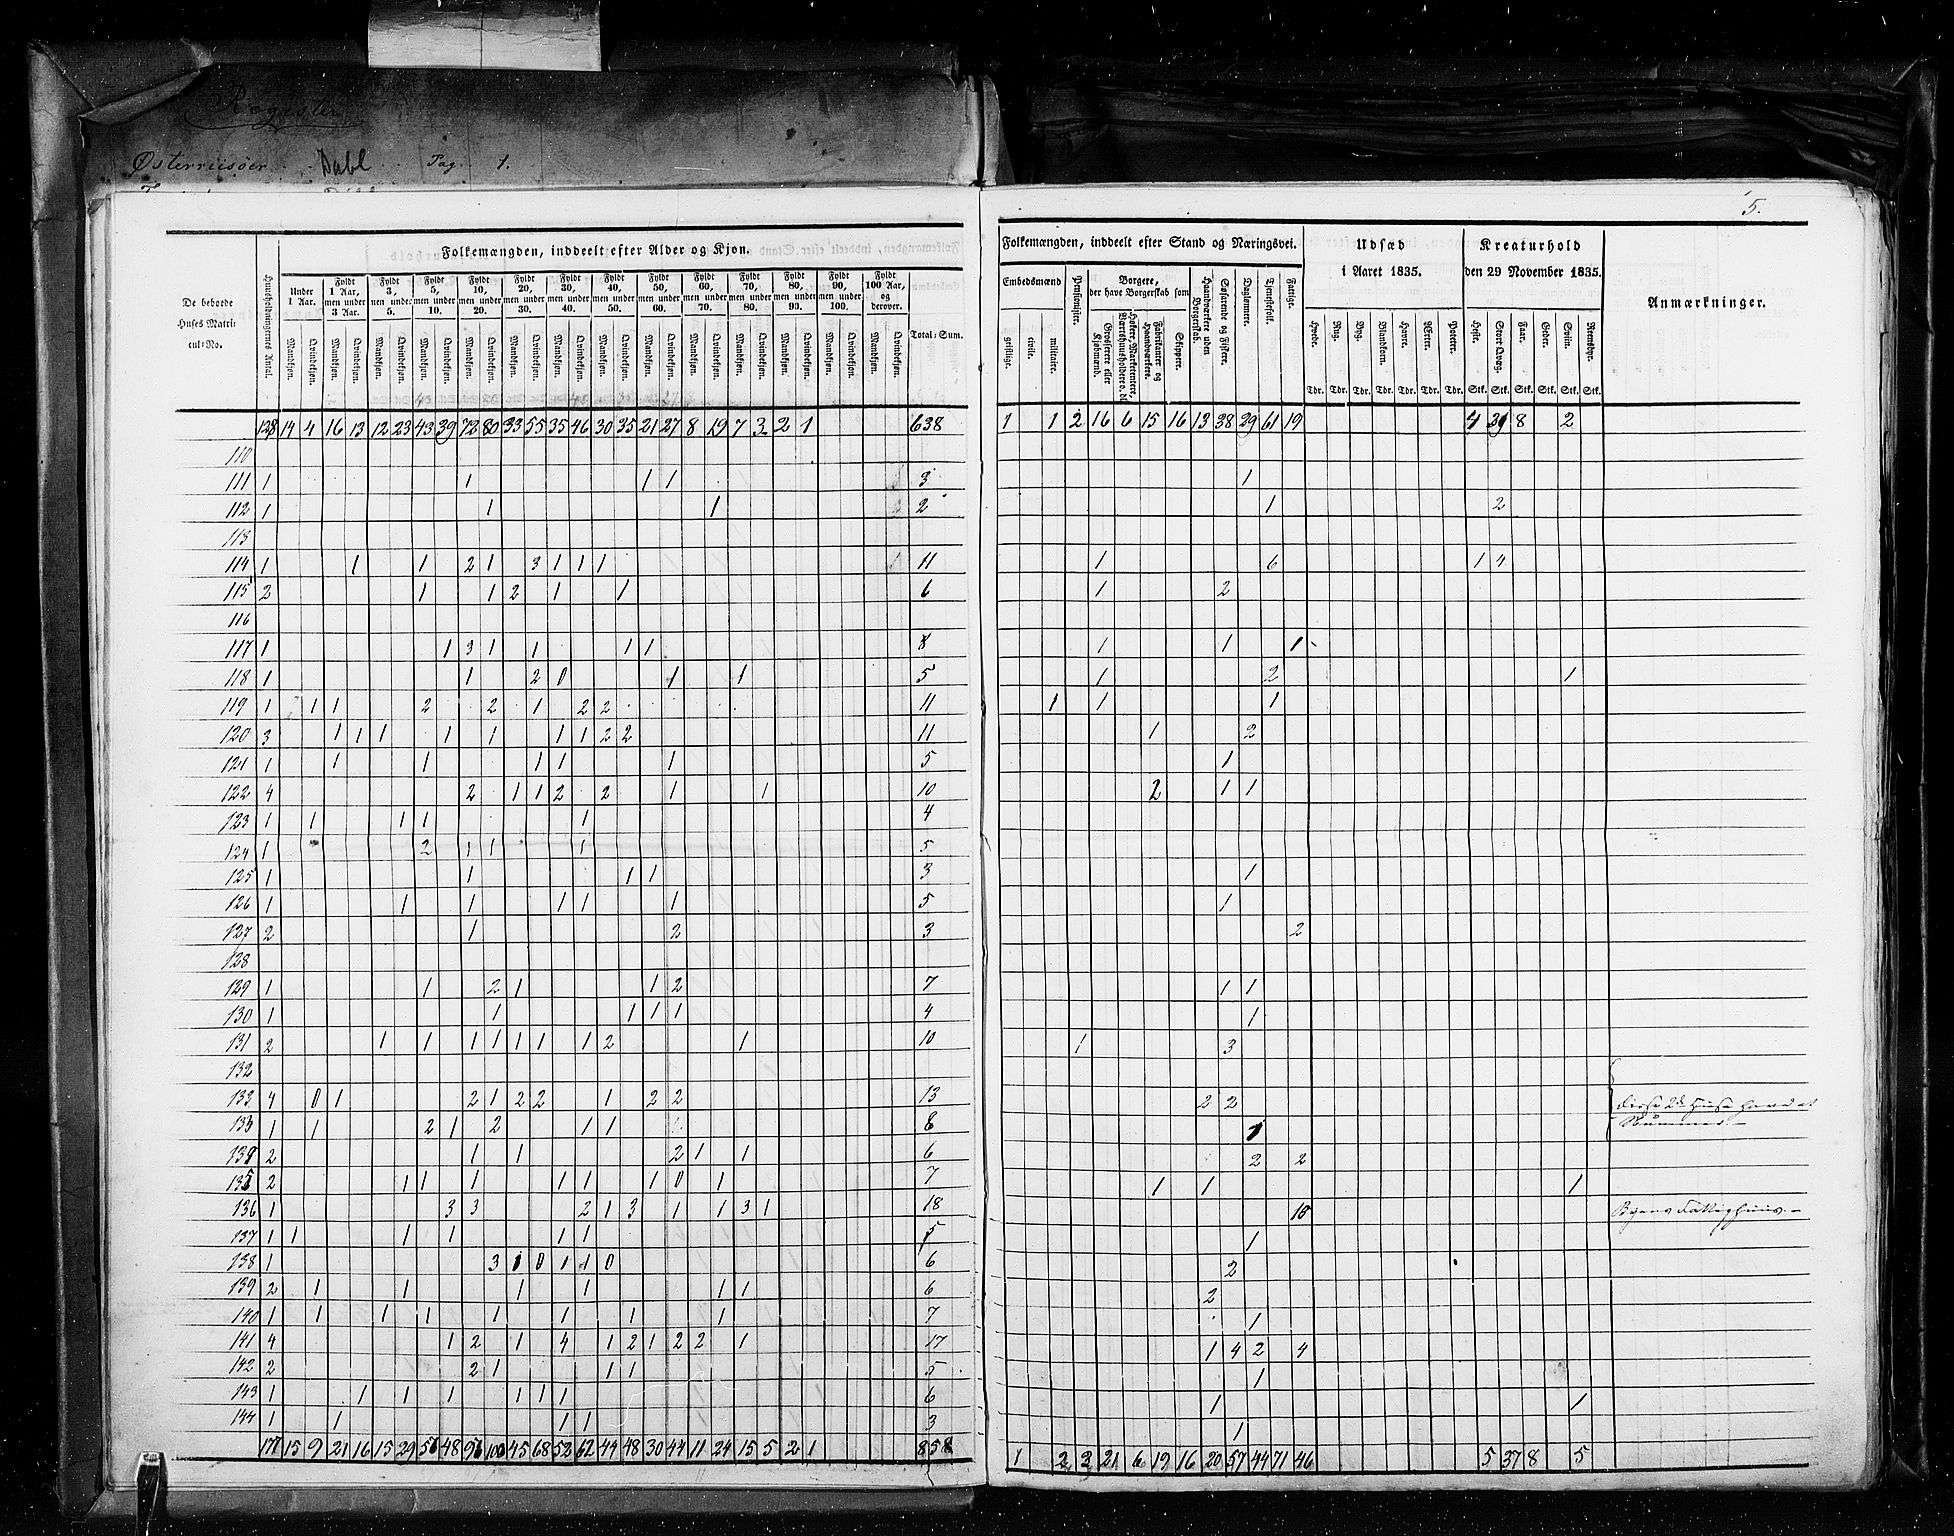 Register
Østerriisøer Dahl Pag. 1.
5.
Folkemængden, inddeelt efter Alder og Kjøn.
De beboede Huses Matricul-No.
Huusholdningernes Antal.
Under 1 Aar.
Fyldt 1 Aar, men under 3 Aar.
Fyldt 3, men under 5.
Fyldt 5, men under 10.
Fyldt 10, men under 20.
Fyldt 20, men under 30.
Fyldt 30, men under 40.
Fyldt 40, men under 50.
Fyldt 50, men under 60.
Fyldt 60, men under 70.
Fyldt 70, men under 80.
Fyldt 80, men under 90.
Fyldt 90, men under 100.
Fyldt 100 Aar, og derover.
Mandkjøn. Qvindekjøn.
Total-Sum.
128 14 4 16 13 12 23 43 39 72 80 33 55 35 46 30 35 21 27 8 19 7 3 2 1 638
110
111 1 1 1 1 3
112 1 1 1 2
113
114 1 1 1 2 1 3 1 1 1 11
115 2 1 1 2 1 1 6
116
117 1 1 3 1 1 1 1 8
118 1 1 2 0 1 1 5
119 1 1 1 2 2 1 2 2 11
120 3 1 1 1 1 1 1 1 2 2 11
121 1 1 1 1 1 1 5
122 4 2 1 1 2 2 1 1 10
123 1 1 1 1 1 4
124 1 2 1 1 1 5
125 1 1 1 1 3
126 1 1 1 1 1 1 5
127 2 1 2 3
128
129 1 1 2 1 1 2 7
130 1 1 1 1 1 4
131 2 1 1 1 1 1 1 1 2 1 10
132
133 4 0 1 2 1 2 2 1 2 2 13
133 1 1 2 1 2 1 1 8
134 2 1 1 2 1 1 6
135 2 1 1 1 1 1 1 0 1 7
136 1 3 3 2 1 3 1 1 3 1 18
137 1 1 1 1 1 1 5
138 1 3 1 0 1 1 0 6
139 2 1 1 1 1 1 1 6
140 1 1 1 1 1 1 1 1 7
141 4 1 2 1 4 1 2 1 2 2 1 17
142 2 2 1 1 1 5
143 1 1 1 1 1 1 1 6
144 1 1 1 1 3
177 15 9 21 16 15 29 56 48 96 100 45 68 52 62 44 48 30 44 11 24 15 5 2 1 858
Folkemængden, inddeelt efter Stand og Næringsvei.
Embedsmænd
geistlige. civile. militaire.
Pensionister.
Borgere, der have Borgerskab som
Grosserere eller Kjøbmænd.
Høkere, Marketentere, Værtshuusholdere o. dl.
Fabrikanter og Haandværkere.
Skippere.
Haandværkere uden Borgerskab.
Søfarende og Fiskere.
Daglønnere.
Tjenestfolk.
Fattige.
Udsæd i Aaret 1835.
Hvede. Rug. Byg. Blandkorn. Havre. Ærter. Poteter.
Tdr. Tdr. Tdr. Tdr. Tdr. Tdr. Tdr.
Kreaturhold den 29 November 1835.
Heste. Stort Qvæg. Faar. Geder. Sviin. Rensdyr.
Stk. Stk. Stk. Stk. Stk. Stk.
Anmærkninger.
1 1 2 16 6 15 16 13 38 29 61 19 4 31 8 2
1
1 2
1 6 1 4
1 2
1 1 1
1 2 1
1 1 1
1 2
1
2 1 1
1
1
2
1 1
1
1 3
2 2 Disse 2de Huse have et Nummer
1
2 2
1 1 1
18 Byens Fattighuus.
1
2
2
1
1 4 2 4
1
1 1
1
1 2 3 21 6 19 16 20 57 44 71 46 5 37 8 5